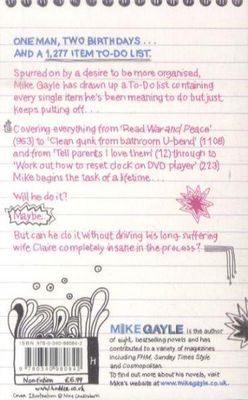 ONE MAN, TWO BIRTHDAYS...
AND A 1,277 ITEM TO-DO LIST.
Spurred on by a desire to be more organised,
Mike Gayle has drawn up a To-Do list containing
every single item he's been meaning to do but just
keeps putting off...
Covering everything from 'Read War and Peace'
(963) to 'Clean gunk from bathroom U-bend' (1108)
and from 'Tell parents I love them' (12) through to
'Work out how to reset clock on DVD player' (223)
Mike begins the task of a lifetime...
Will he do it?
Maybe.
But can he do it without driving his long-suffering
wife Claire completely insane in the process?
MIKE GAYLE is the author
of eight bestselling novels and has
contributed to a variety of magazines
including FHM, Sunday Times Style
and Cosmopolitan.
To find out more about his novels, visit
Mike's website at www.mikegayle.co.uk.
ISBN 978-0-340-98094-2
9780340980942
H
Non-fiction £6.99
www.hodder.co.uk
Cover Illustration ©